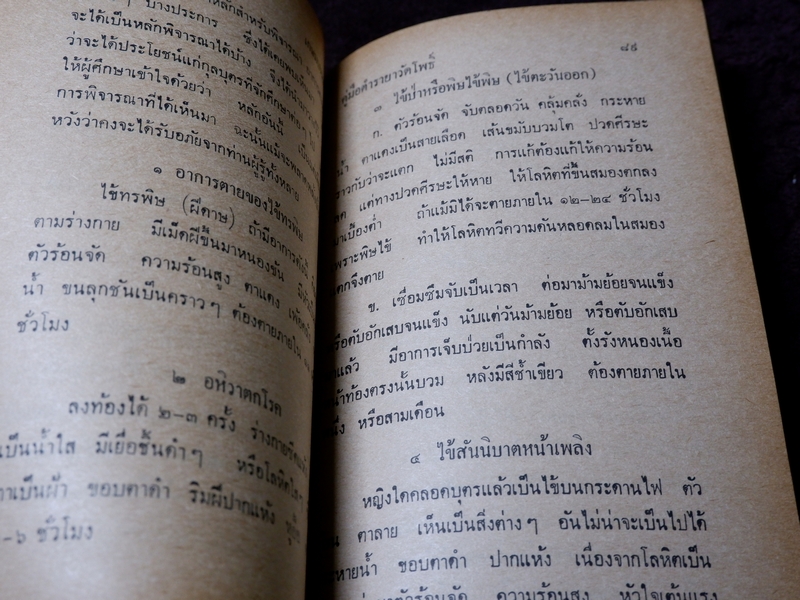 หลักสำหรับพิจารณา
ๆ บางประการ ซึ่งได้เคยพบเห็นมา
จะได้เป็นหลักพิจารณาได้บ้าง จึงได้นำมา
ว่าจะได้ประโยชน์แก่กุลบุตรที่จักศึกษาต่อๆ
ให้ผู้ศึกษาเข้าใจด้วยว่า หลักอันนี้ เป็น
การพิจารณาที่ได้เห็นมา ฉะนั้นแม้จะพลาด
หวังว่าคงจะได้รับอภัยจากท่านผู้รู้ทั้งหลาย
๑ อาการตายของไข้ทรพิษ
ไข้ทรพิษ (ฝีดาษ) ถ้ามีอาการ
ตามร่างกาย มีเม็ดฝีขึ้นมาหนองข้น
ตัวร้อนจัด ความร้อนสูง ตาแดง
น้ำ ขนลุกชันเป็นคราวๆ ต้องตายภายใน
ชั่วโมง
๒ อหิวาตกโรค
ลงท้องได้ ๒-๓ ครั้ง ร่างกาย
เป็นน้ำใส มีเยื่อชิ้นดำๆ หรือโลหิต
าเป็นฝ้า ขอบตาดำ ริมฝีปากแห้ง
-๖ ชั่วโมง
คู่มือตำรายาวัดโพธิ์ ๘๙
๓ ไข้ป่าหรือพิษไข้พิษ (ไข้ตะวันออก)
ก. ตัวร้อนจัด จับตลอดวัน คลุ้มคลั่ง กระหาย
น้ำ ตาแดงเป็นสายเลือด เส้นขมับบวมโต ปวดศีรษะ
ราวกับว่าจะแตก ไม่มีสติ การแก้ต้องแก้ให้ความร้อน
ลด แต่ทางปวดศีรษะให้หาย ให้โลหิตที่ขึ้นสมองตกลง
มาเบื้องต่ำ ถ้าแม้มิได้จะตายภายใน ๑๒-๒๔ ชั่วโมง
เพราะพิษไข้ ทำให้โลหิตทวีความดันหลอดลมในสมอง
แตกจึงตาย
ข. เซื่อมซึมจับเป็นเวลา ต่อมาม้ามย้อยจนแข็ง
หรือตับอักเสบจนแข็ง นับแต่วันม้ามย้อย หรือตับอักเสบ
มาแล้ว มีอาการเจ็บป่วยเป็นกำลัง ตั้งรังหนองเนื้อ
หน้าท้องตรงนั้นบวม หลังมีสีช้ำเขียว ต้องตายภายใน
หนึ่ง หรือสามเดือน
๔ ไข้สันนิบาตหน้าเพลิง
หญิงใดคลอดบุตรแล้วเป็นไข้บนกระดานไฟ ตัว
ตาลาย เห็นเป็นสิ่งต่างๆ อันไม่น่าจะเป็นไปได้
ะหายน้ำ ขอบตาดำ ปากแห้ง เนื่องจากโลหิตเป็น
ตัวร้อนจัด ความร้อนสูง หัวใจเต้นแรง